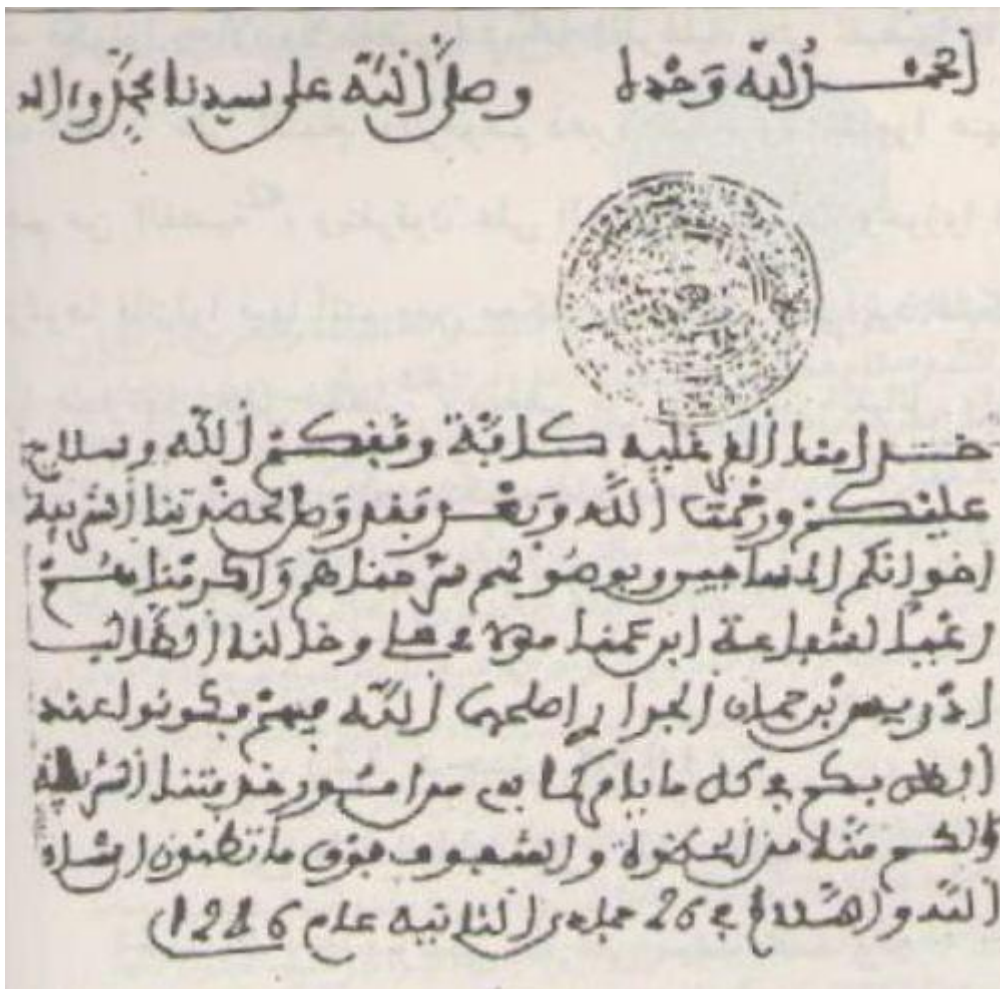 الحمد لله وحده وصلى الله على سيدنا محمد وآله
خدامنا كافة وفقكم الله وسلام
عليكم ورحمت الله وبعد فقد وصل لحضرتنا الشريفة
اخوانكم المساجين وبوصولهم سرحناهم وأكرمناهم
رعيا لشفاعة ابن عمنا وخالنا الطالب
ادريس بن حمان الجراري أصلحهما الله فيهم فكونوا عند
الظن بكم في كل ما يامركما به من امور خدمتنا الشريفة
ولكم منا من الحظوة والشفوف فوق ما تظنون ان شاء
الله والسلام في 26 جمادى الثانية عام